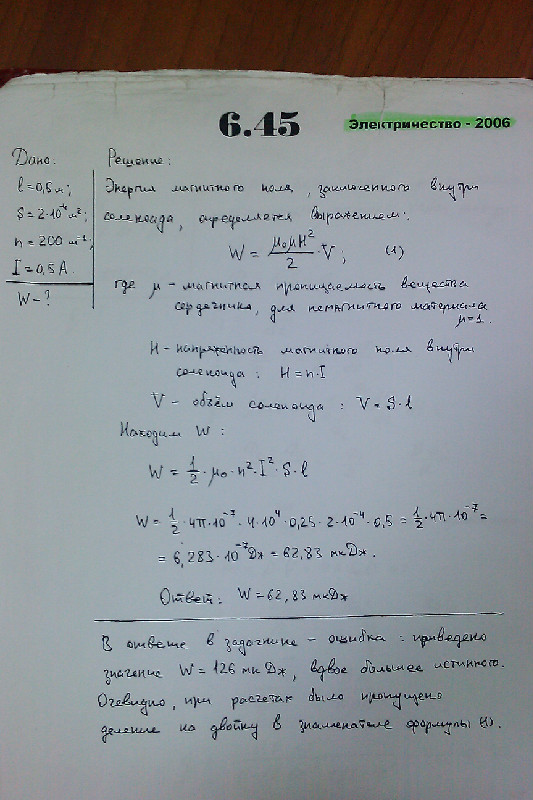 6.45
Электричество - 2006
Дано:
l=0,5 м;
S=2·10⁻⁴ м²;
n=200 м⁻¹;
I=0,5 А.
W-?
Решение:
Энергия магнитного поля, заключенного внутри
соленоида, определяется выражением:
W = μ₀μH²/2 · V, (1)
где μ - магнитная проницаемость вещества
сердечника, для немагнитного материала
μ=1.
H - напряженность магнитного поля внутри
соленоида: H=n·I
V - объём соленоида: V=S·l
Находим W:
W = 1/2 · μ₀ · n² · I² · S · l
W = 1/2 · 4π·10⁻⁷ · 4·10⁴ · 0,25 · 2·10⁻⁴ · 0,5 = 1/2 · 4π·10⁻⁷ =
= 6,283·10⁻⁷ Дж = 62,83 мкДж.
Ответ: W=62,83 мкДж
В ответе в задачнике - ошибка: приведено
значение W=126 мкДж, вдвое большее истинного.
Очевидно, при расчетах было пропущено
деление на двойку в знаменателе формулы (1).